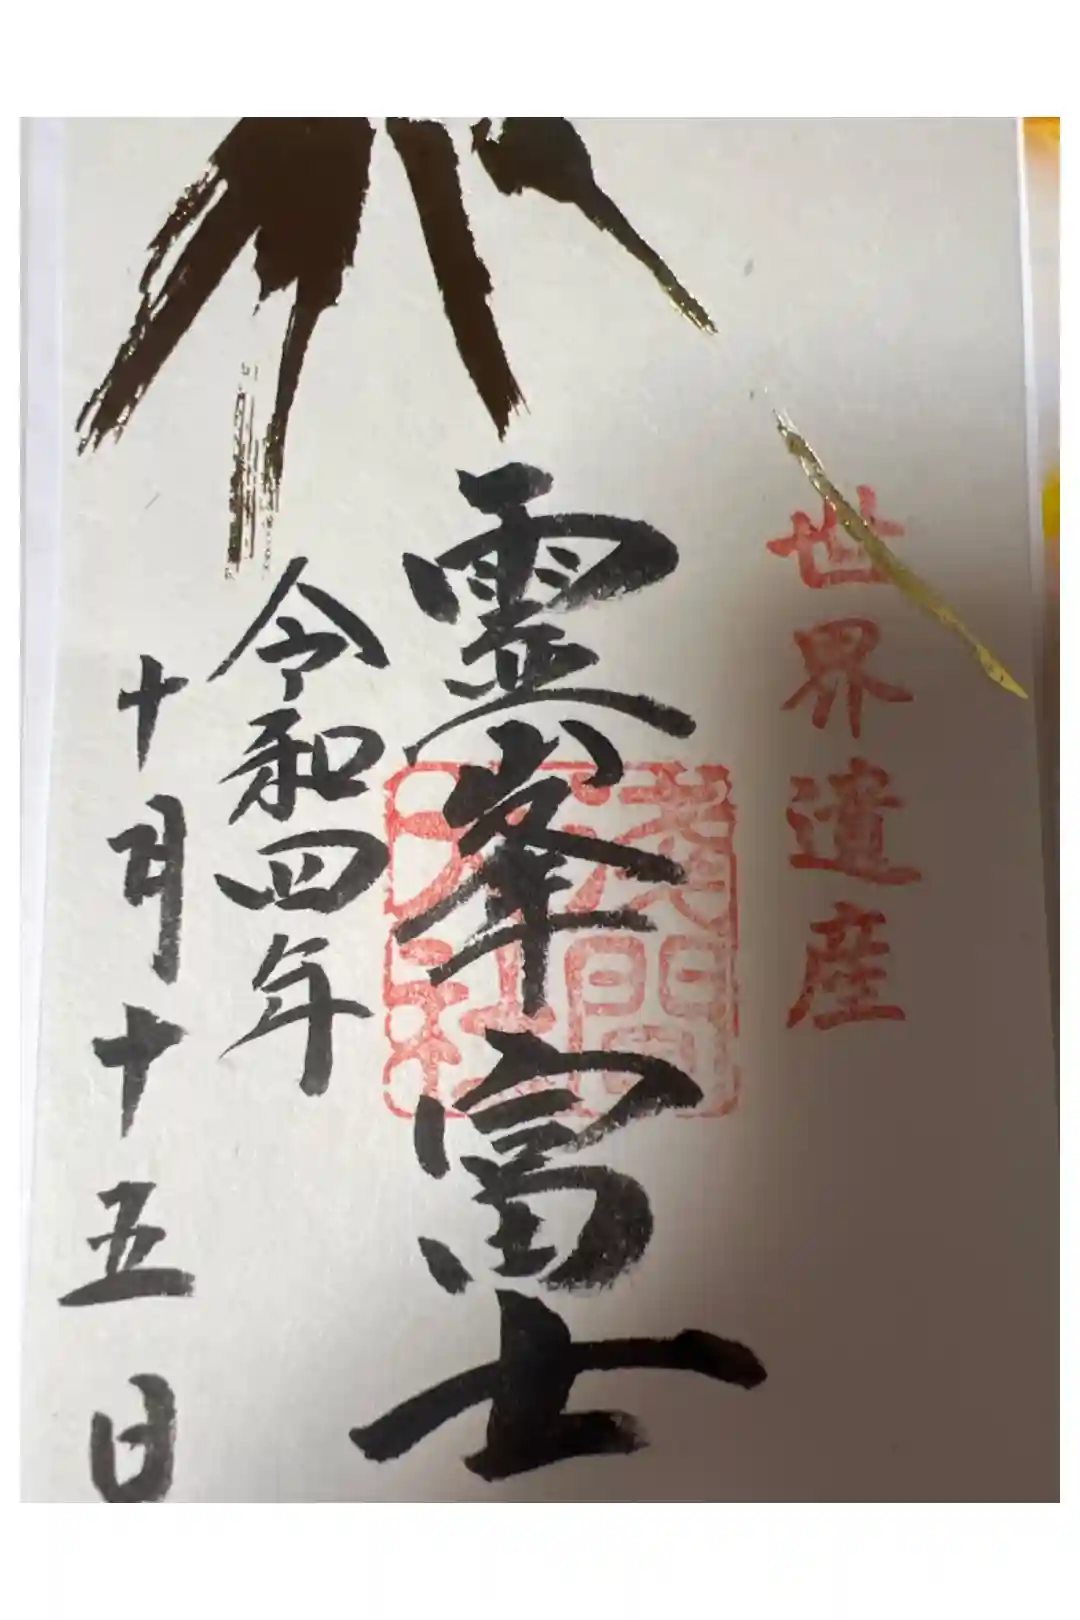 世界遺産
霊峯富士
淺間大社
令和四年
十月十五日